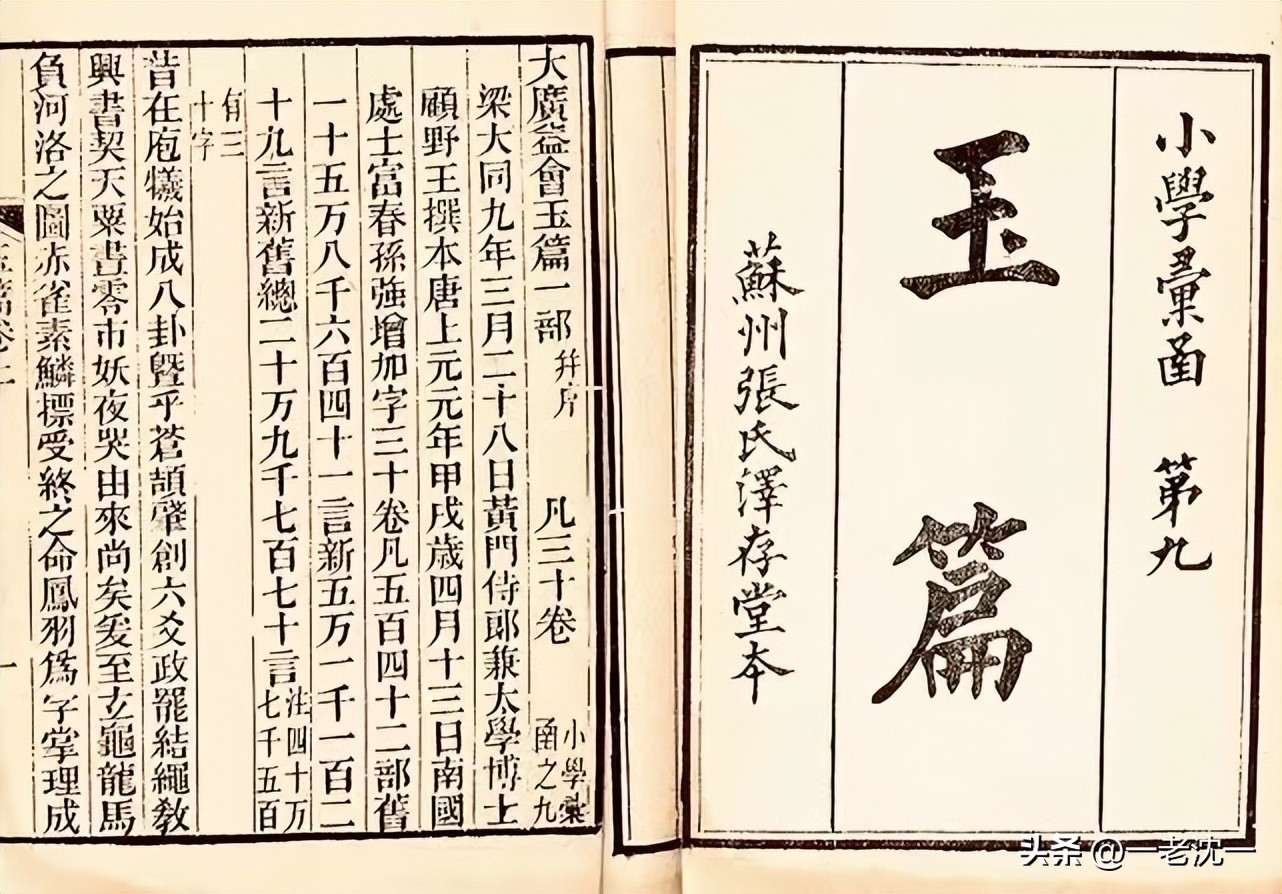 小學彙函 第九
玉篇
蘇州張氏澤存堂本
大廣益會玉篇一部 并序 凡三十卷 小學彙函之九
梁大同九年三月二十八日黃門侍郎兼太學博士
顧野王撰本唐上元元年甲戌歲四月十三日南國
處士富春孫強增加字三十卷凡五百四十二部舊
一十五万八千六百四十一言新五万一千一百二
十九言新舊總二十万九千七百七十言 注四十万七千五百
有三十字
昔在庖犧始成八卦暨乎蒼頡肇創六爻政罷結繩教
興書契天粟晝零市妖夜哭由來尚矣爰至玄龜龍馬
負河洛之圖赤雀素鱗摽受終之命鳳羽爲字掌理成
一
头条 @一老沈一